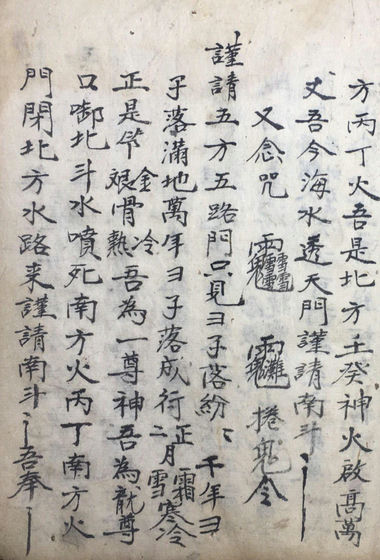 方丙丁火吾是北方壬癸神火啟高萬
丈吾今海水透天門謹請南斗
又念咒 捲鬼令
謹請五方五路門只見ヨ子落紛〻千年ヨ
子落滿地萬年ヨ子落成行正二月霜雪寒冷
正是 骨熱冷吾為一尊神吾為龍尊
口啣北斗水噴死南方火丙丁南方火
門閉北方水路来謹請南斗 吾奉